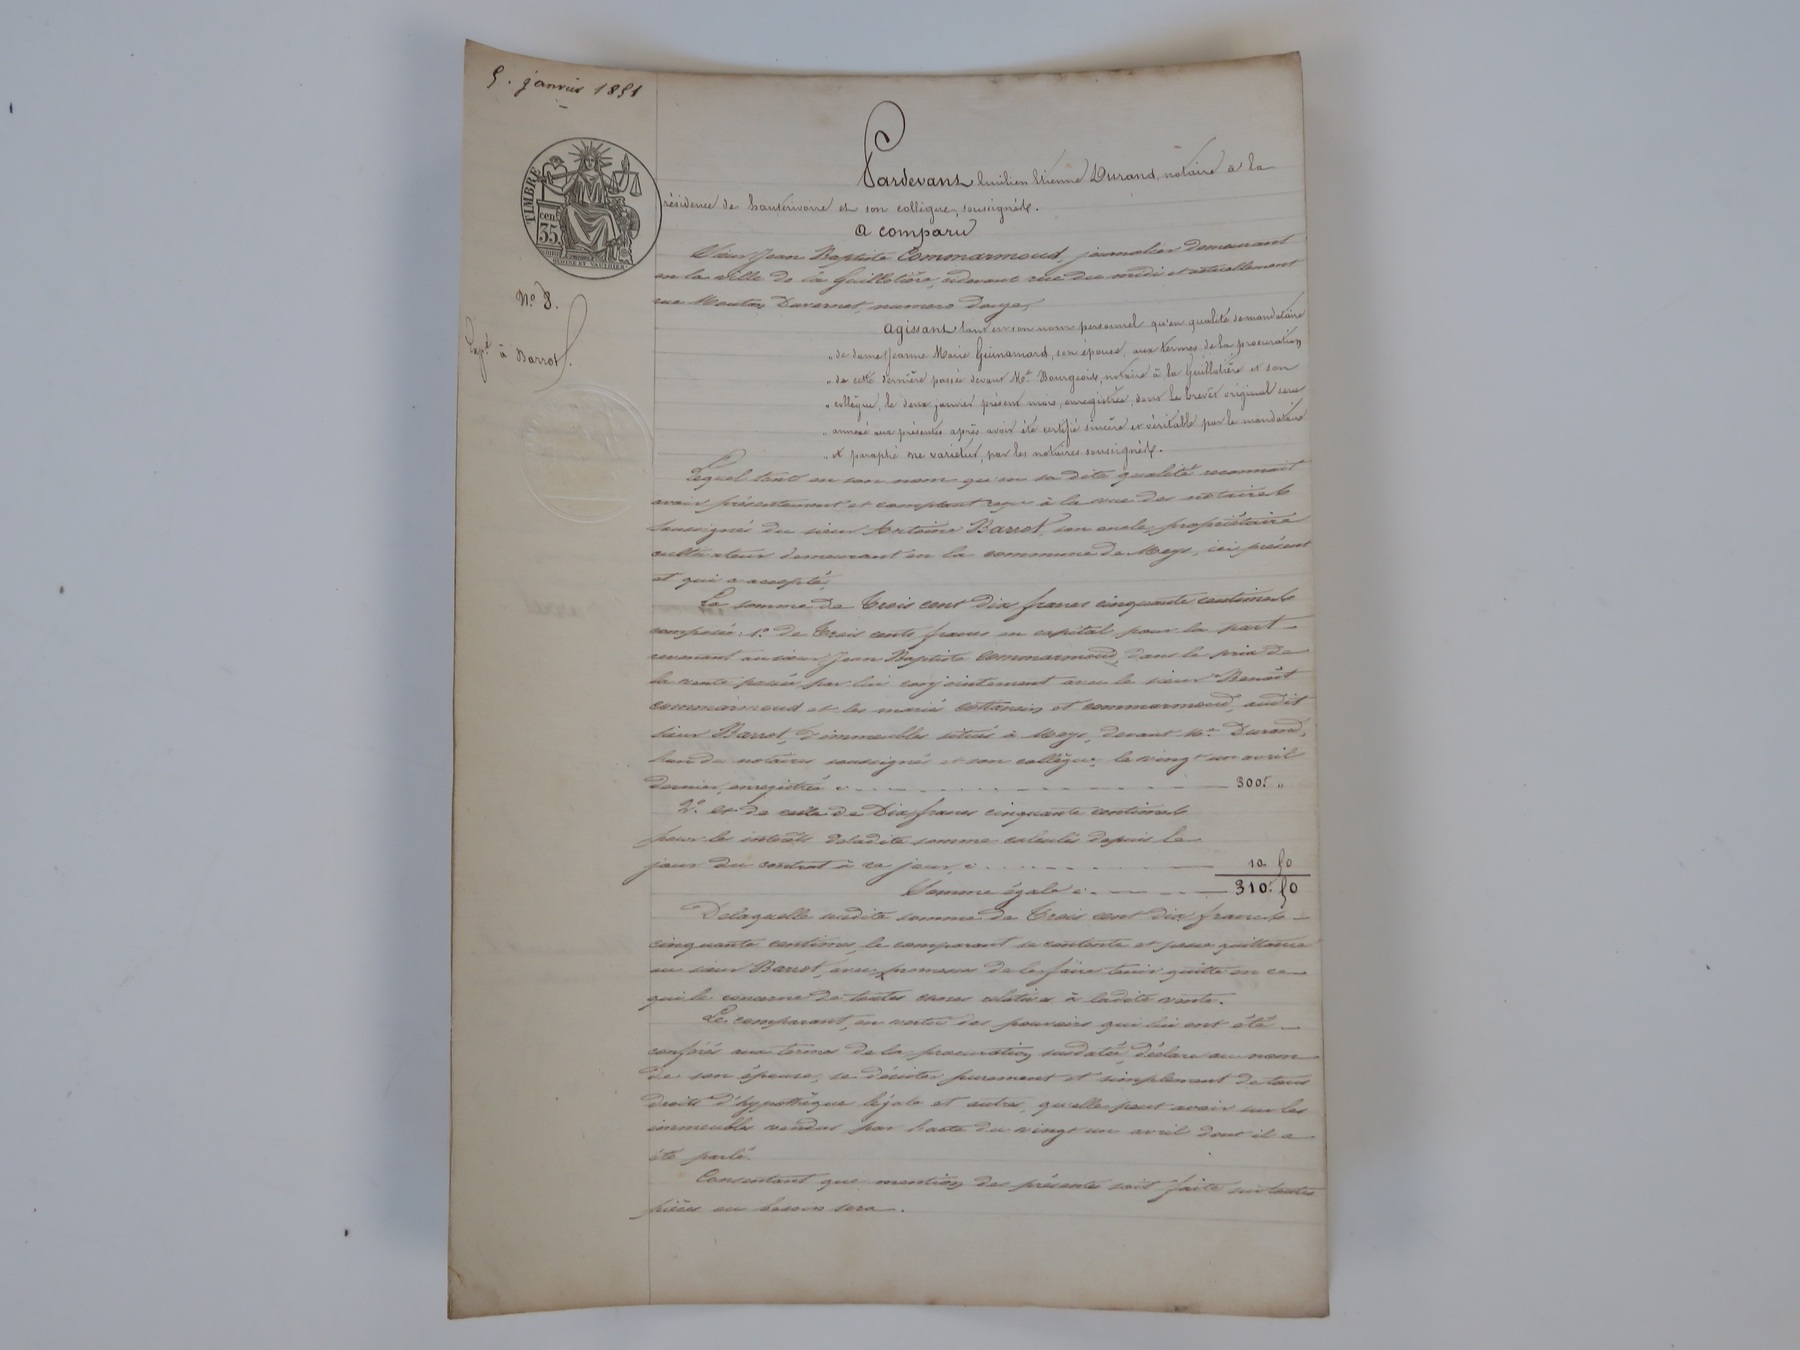 5. janvier 1851
TIMBRE
cen.
35
N.° 3.
Exp.é à Barrot.
Pardevant Emilien Etienne Durand, notaire à la
résidence de hauterivoire et son collègue, soussignés.
a comparu
Sieur Jean Baptiste Commarmond, journalier demeurant
en la ville de la Guillotière, cidevant rue du midi et actuellement
rue Mouton Duvernet, numero douze,
agissant tant en son nom personnel qu'en qualité de mandataire
„ de dame Jeanne Marie Guinamard, son épouse, aux termes de la procuration
„ de cette dernière passée devant M.e Bourgeois, notaire à la Guillotière et son
„ collègue, le deux janvier présent mois, enregistrée, dont le brevet original sera
„ annexé aux présentes après avoir été certifié sincère et véritable par le mandataire
„ et paraphé ne varietur, par les notaires soussignés.
Lequel tant en son nom qu'en sa dite qualité reconnait
avoir présentement et comptant reçu à la vue des notaires
soussignés du sieur Antoine Barrot, son oncle, propriétaire
cultivateur demeurant en la commune de Meys, ici présent
et qui a accepté,
La somme de Trois cent dix francs cinquante centimes
composée: 1.° de Trois cents francs en capital pour la part
revenant au sieur Jean Baptiste Commarmond, dans le prix de
la vente passée par lui conjointement avec le sieur Benoît
commarmond et les mariés et commarmond, audit
sieur Barrot, d'immeubles situés à Meys, devant M.e Durand,
l'un des notaires soussigné et son collègue, le vingt un avril
dernier, enregistrée ci 300.f „
2.° et de celle de Dix francs cinquante centimes
pour les intérêts deladite somme calculés depuis le
jour du contrat à ce jour, ci 10 50
Somme égale ci 310.f 50
Delaquelle susdite somme de Trois cent dix francs
cinquante centimes, le comparant se contente et passe quittance
au sieur Barrot, avec promesse de le faire tenir quitte en ce
qui le concerne de toutes choses relatives à ladite vente.
Le comparant, en vertu des pouvoirs qui lui ont été
conférés aux termes de la procuration susdatée, déclare au nom
de son épouse, se désister purement et simplement de tous
droits d'hypothèque légale et autres, qu'elle peut avoir sur les
immeubles vendus par l'acte du vingt un avril dont il a
été parlé.
Consentant que mention des présentes soit faite sur toutes
pièces ou besoin sera.